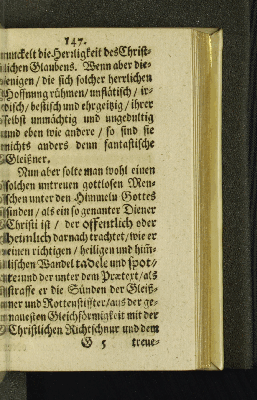 147.
munckelt die Herzligkeit des Christ-
lichen Glaubens. Wenn aber die-
jenigen / die sich solcher herrlichen
Hoffnung rühmen / unflätisch / ir-
disch / bestisch und ehrgeitzig / ihrer
selbst unmächtig und ungedultig
und eben wie andere / so sind sie
nichts anders denn fantastische
Gleißner.
Nun aber solte man wohl einen
solchen untreuen gottlosen Men-
schen unter den Himmeln Gottes
finden / als ein so genanter Diener
Christi ist / der offentlich oder
heimlich darnach trachtet / wie er
einen richtigen / heiligen und him̃-
lischen Wandel tadele und spot-
te: und der unter dem Prætext / als
straffe er die Sünden der Gleiß-
ner und Rottenstiffter / aus der ge-
nauesten Gleichförmigkeit mit der
Christlichen Richtschnur und dem
G 5 treue-